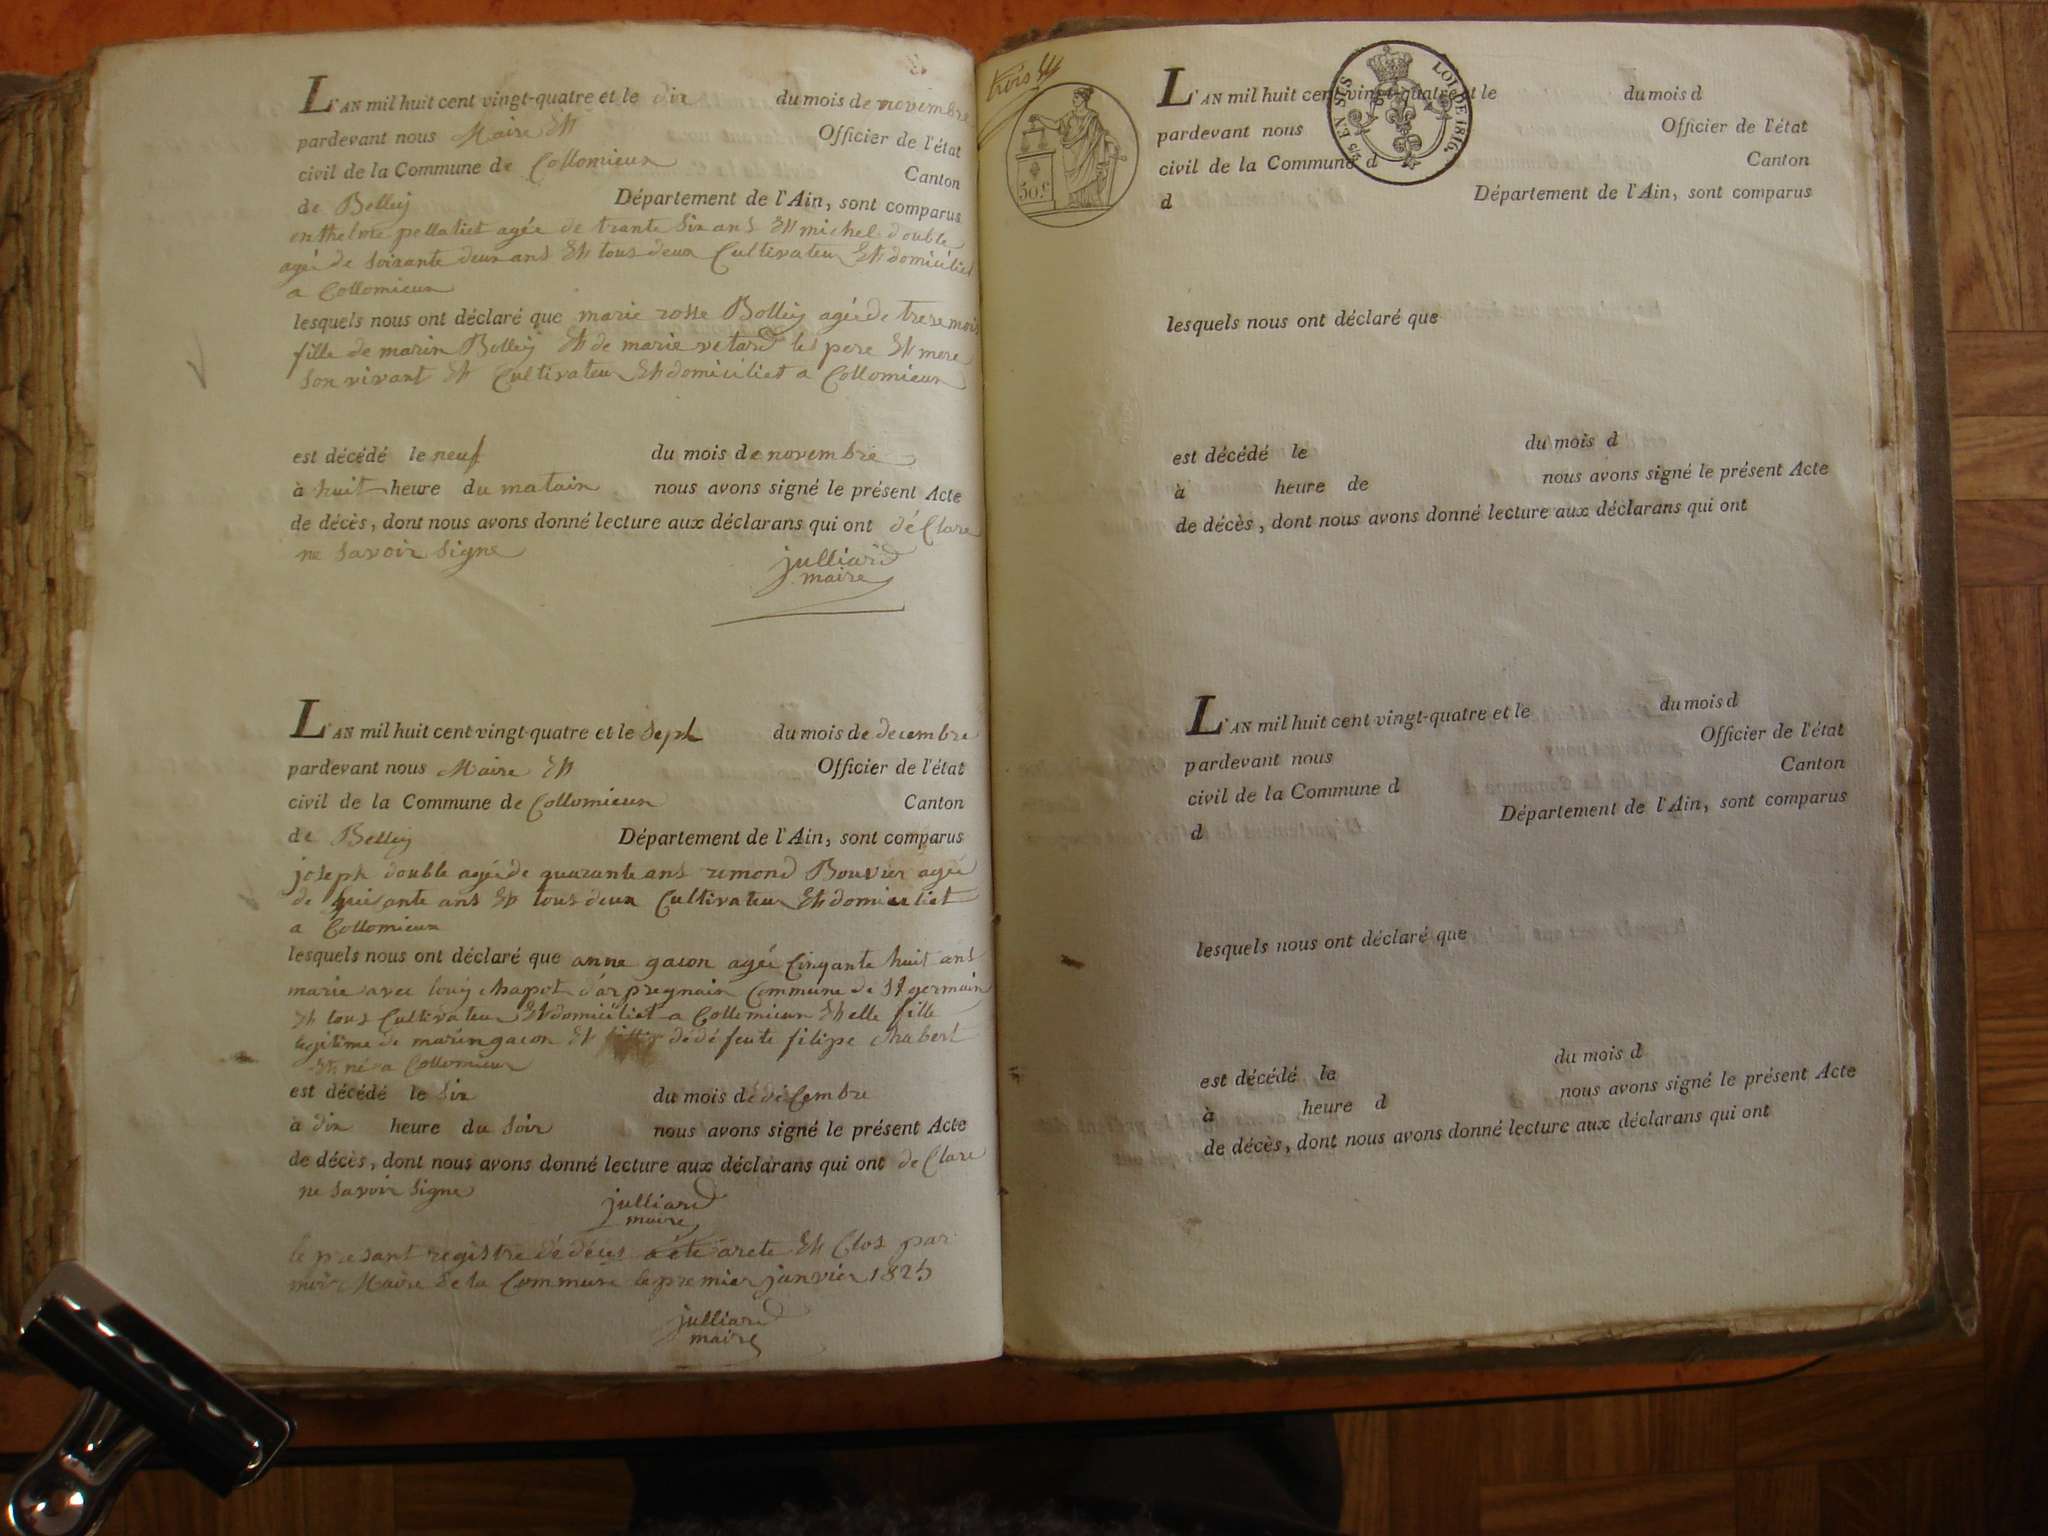 L'AN mil huit cent vingt-quatre et le dix du mois de novembre
pardevant nous Maire Et Officier de l'état
civil de la Commune de Collomieux Canton
de Belley Département de l'Ain, sont comparus
enthelme pellatiet agée de trante six ans Et michel double
agée de soixante deux ans Et tous deux Cultivateur Et domiciliet
a Collomieux
lesquels nous ont déclaré que marie rosse Bolley agée de trese mois
fille de marin Bolley Et de marie vetard le pere Et mere
son vivant Et Cultivateur Et domiciliet a Collomieux
est décédé le neuf du mois de novembre
à huit heure du matain nous avons signé le présent Acte
de décès, dont nous avons donné lecture aux déclarans qui ont déClare
ne savoir signe
julliard
maire
L'AN mil huit cent vingt-quatre et le sept du mois de decembre
pardevant nous Maire Et Officier de l'état
civil de la Commune de Collomieux Canton
de Belley Département de l'Ain, sont comparus
joseph double agée de quarante ans remond Bouvier agée
de ans Et tous deux Cultivateur Et domiciliet
a Collomieux
lesquels nous ont déclaré que anne gacon agée Cinqante huit ans
marie avec louy chapot d'arpregnain Commune de St germain
Et tous Cultivateur Et domiciliet a Collomieux Et elle fille
legitime de marin gacon Et dédéfente filipe chabert
Et né a Collomieux
est décédé le six du mois dédéCembre
à dix heure du soir nous avons signé le présent Acte
de décès, dont nous avons donné lecture aux déclarans qui ont deClare
ne savoir signe
julliard
maire
le presant registre dédéces a été arete Et Clos par
moir Maire de la Commune le premier janvier 1825
julliard
maire
trois
50 c.
5/5 EN SUS
LOI DE 1816.
L'AN mil huit cent vingt-quatre et le du mois d
pardevant nous Officier de l'état
civil de la Commune d Canton
d Département de l'Ain, sont comparus
lesquels nous ont déclaré que
est décédé le du mois d
à heure de nous avons signé le présent Acte
de décès, dont nous avons donné lecture aux déclarans qui ont
L'AN mil huit cent vingt-quatre et le du mois d
pardevant nous Officier de l'état
civil de la Commune d Canton
d Département de l'Ain, sont comparus
lesquels nous ont déclaré que
est décédé le du mois d
à heure d nous avons signé le présent Acte
de décès, dont nous avons donné lecture aux déclarans qui ont